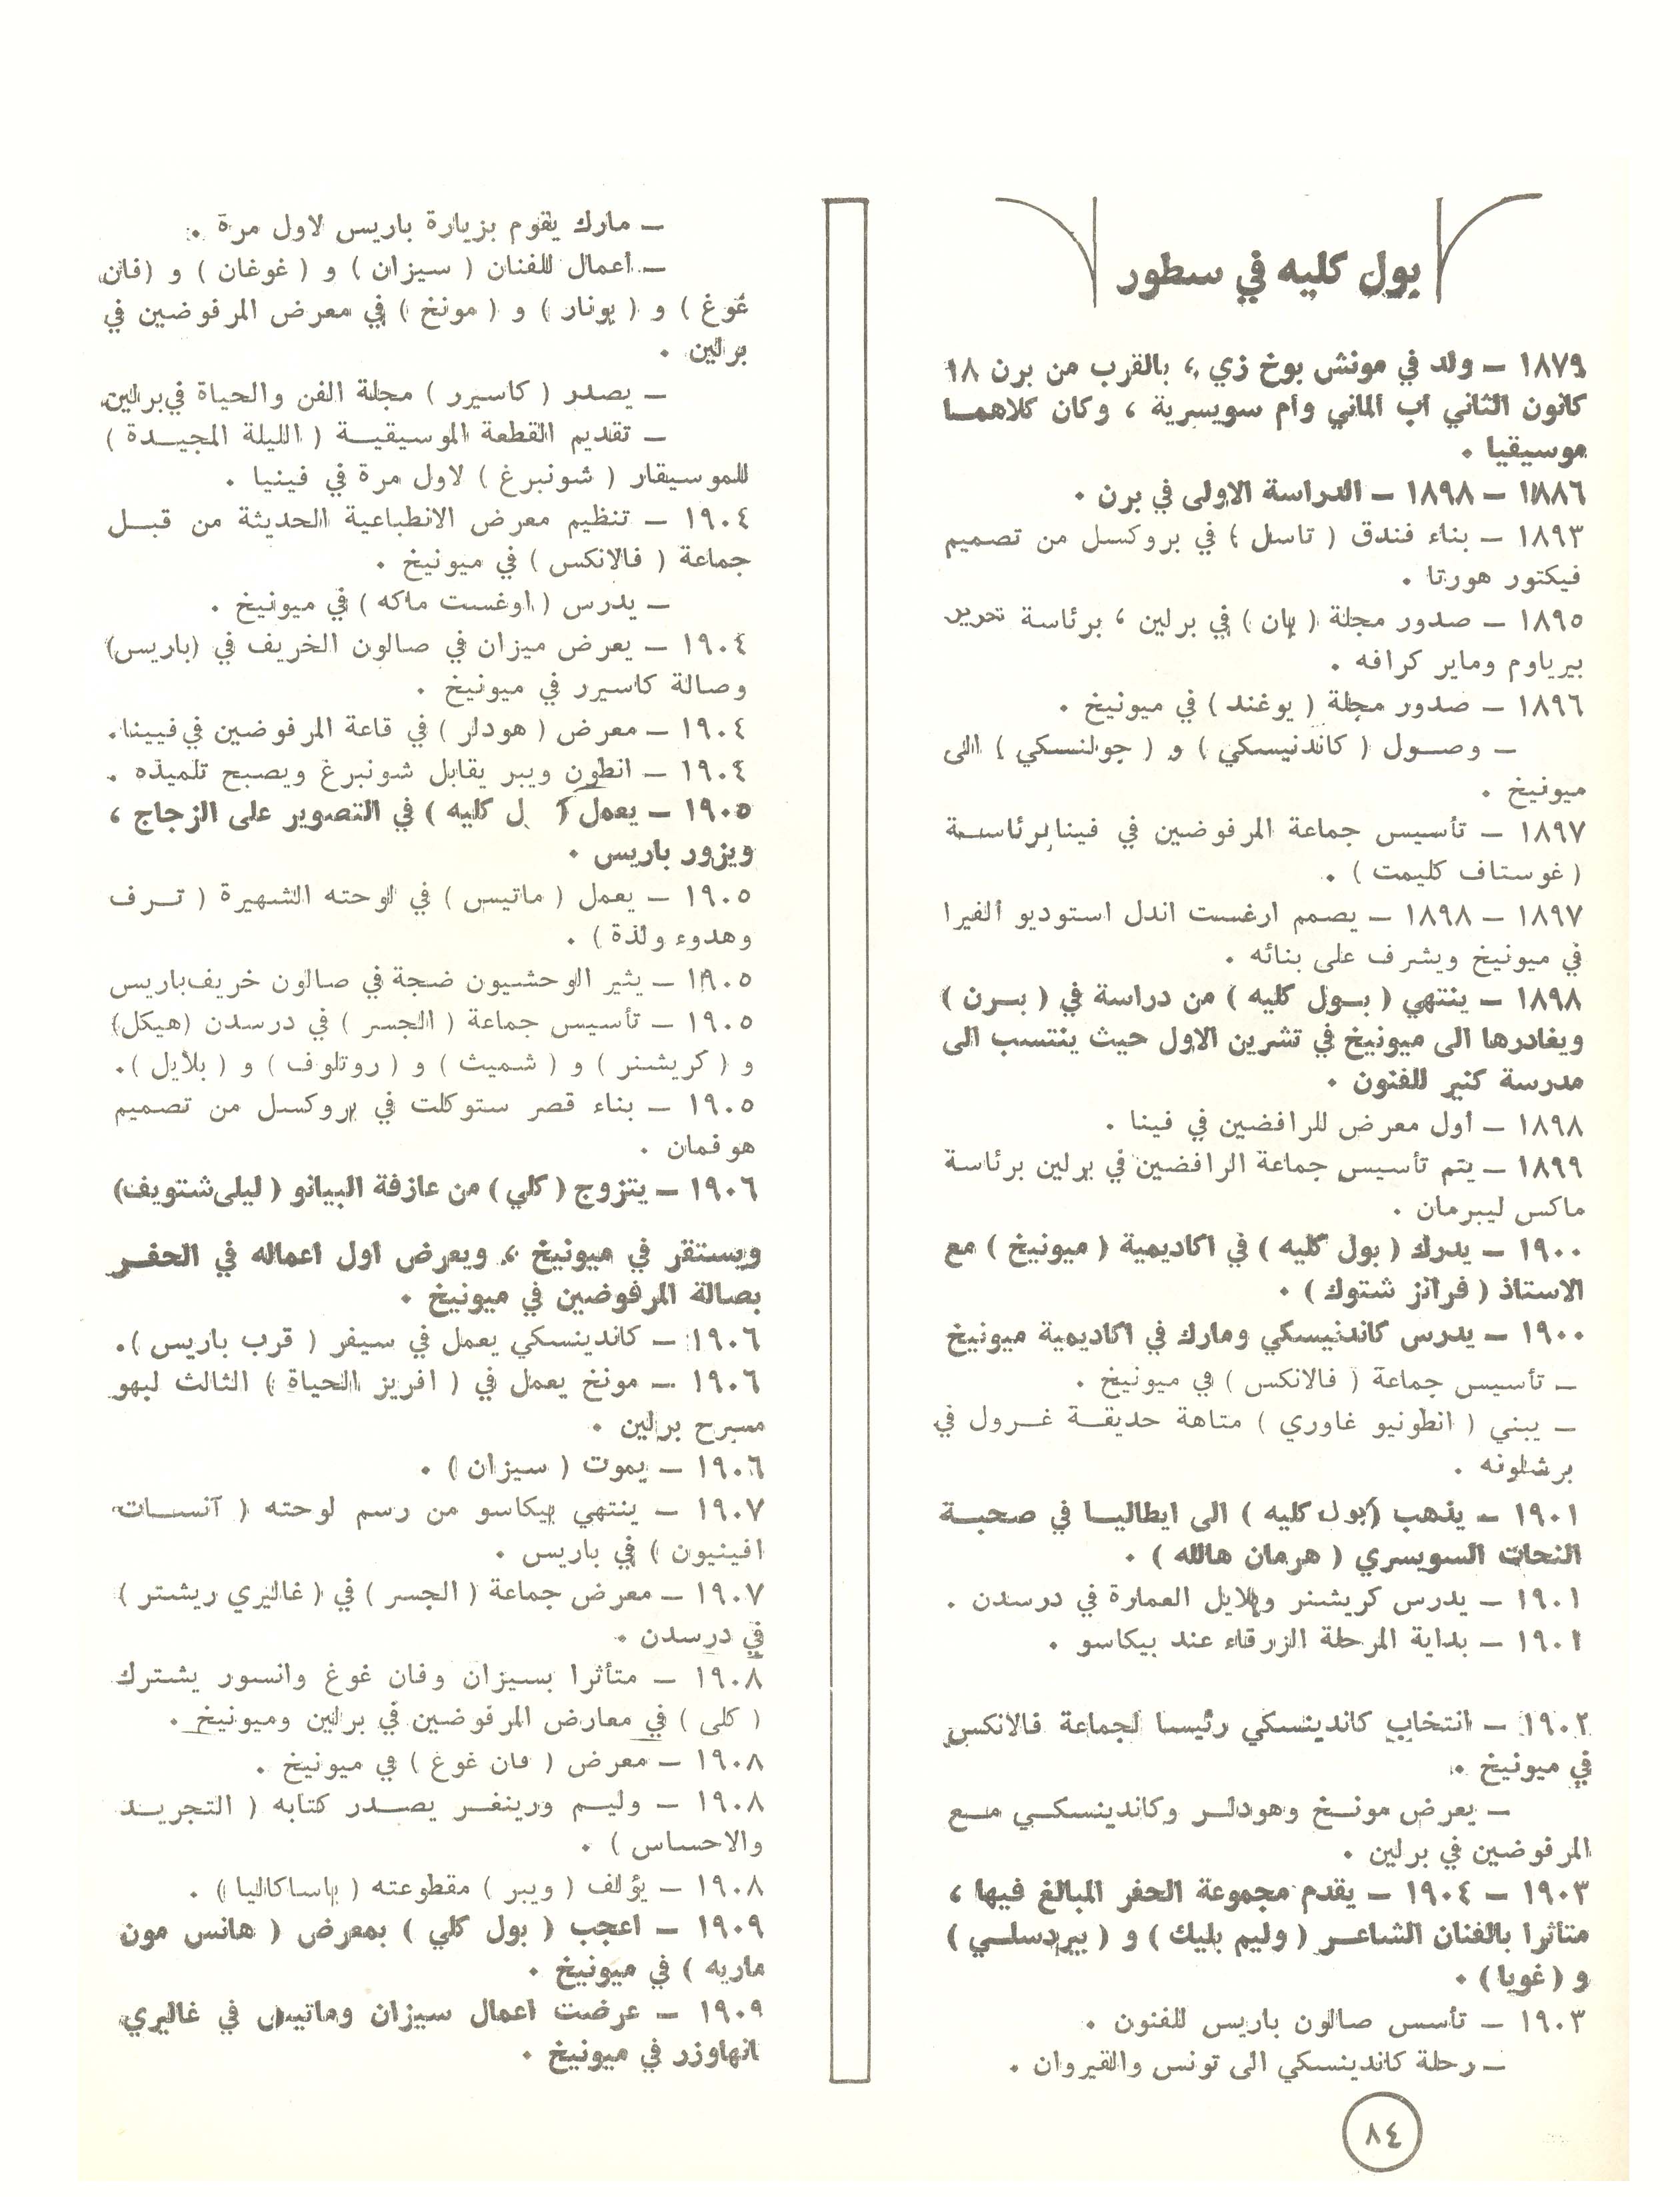 بول كليه في سطور
١٨٧٩ – ولد في مونش بوخ زي ، بالقرب من برن ١٨
كانون الثاني أب ألماني وأم سويسرية ، وكان كلاهما
موسيقيا .
١٨٨٦ – ١٨٩٨ – الدراسة الاولى في برن .
١٨٩٣ – بناء فندق ( تاسل ) في بروكسل من تصميم
فيكتور هورتا .
١٨٩٥ – صدور مجلة ( بان ) في برلين ، برئاسة تحرير
بيرياوم وماير كرافه .
١٨٩٦ – صدور مجلة ( يوغند ) في ميونيخ .
– وصول ( كاندنيسكي ) و ( جولنسكي ) الى
ميونيخ .
١٨٩٧ – تأسيس جماعة المرفوضين في فينا برئاسة
( غوستاف كليمت ) .
١٨٩٧ – ١٨٩٨ – يصمم ارغست اندل استوديو ألفيرا
في ميونيخ ويشرف على بنائه .
١٨٩٨ – ينتهي ( بول كليه ) من دراسة في ( برن )
ويغادرها الى ميونيخ في تشرين الاول حيث ينتسب الى
مدرسة كنير للفنون .
١٨٩٨ – أول معرض للرافضين في فينا .
١٨٩٩ – يتم تأسيس جماعة الرافضين في برلين برئاسة
ماكس ليبرمان .
١٩٠٠ – يدرك ( بول كليه ) في أكاديمية ( ميونيخ ) مع
الاستاذ ( فرانز شتوك ) .
١٩٠٠ – يدرس كاندنيسكي ومارك في أكاديمية ميونيخ
– تأسيس جماعة ( فالانكس ) في ميونيخ .
– يبني ( انطونيو غاوري ) متاهة حديقة غرول في
برشلونه .
١٩٠١ – يذهب ( بول كليه ) الى ايطاليا في صحبة
النحات السويسري ( هرمان هالله ) .
١٩٠١ – يدرس كريشنر وبلايل العمارة في درسدن .
١٩٠١ – بداية المرحلة الزرقاء عند بيكاسو .
١٩٠٢ – انتخاب كاندينسكي رئيسا لجماعة فالانكس
في ميونيخ .
– يعرض مونخ وهودلر وكاندينسكي مع
المرفوضين في برلين .
١٩٠٣ – ١٩٠٤ – يقدم مجموعة الحفر المبالغ فيها ،
متأثرا بالفنان الشاعر ( وليم بليك ) و ( بيردسلي )
و ( غويا ) .
١٩٠٣ – تأسس صالون باريس للفنون .
– رحلة كاندينسكي الى تونس والقيروان .
– مارك يقوم بزيارة باريس لاول مرة .
– أعمال للفنان ( سيزان ) و ( غوغان ) و ( فان
غوغ ) و ( بونار ) و ( مونخ ) في معرض المرفوضين في
برلين .
– يصدر ( كاسيرر ) مجلة الفن والحياة في برلين
– تقديم القطعة الموسيقية ( الليلة المجيدة )
للموسيقار ( شونبرغ ) لاول مرة في فينيا .
١٩٠٤ – تنظيم معرض الانطباعية الحديثة من قبل
جماعة ( فالانكس ) في ميونيخ .
– يدرس ( اوغست ماكه ) في ميونيخ .
١٩٠٤ – يعرض ميزان في صالون الخريف في ( باريس )
وصالة كاسيرر في ميونيخ .
١٩٠٤ – معرض ( هودلر ) في قاعة المرفوضين في فيينا .
١٩٠٤ – انطون ويبر يقابل شونبرغ ويصبح تلميذه .
١٩٠٥ – يعمل ل كليه ) في التصوير على الزجاج ،
ويزور باريس .
١٩٠٥ – يعمل ( ماتيس ) في لوحته الشهيرة ( ترف
وهدوء ولذة ) .
١٩٠٥ – يثير الوحشيون ضجة في صالون خريف باريس
١٩٠٥ – تأسيس جماعة ( الجسر ) في درسدن ( هيكل )
و ( كريشنر ) و ( شميث ) و ( روتلوف ) و ( بلايل ) .
١٩٠٥ – بناء قصر ستوكلت في بروكسل من تصميم
هوفمان .
١٩٠٦ – يتزوج ( كلي ) من عازفة البيانو ( ليلى شتويف )
ويستقر في ميونيخ ، ويعرض أول اعماله في الحفر
بصالة المرفوضين في ميونيخ .
١٩٠٦ – كاندينسكي يعمل في سيفر ( قرب باريس ) .
١٩٠٦ – مونخ يعمل في ( افريز الحياة ) الثالث لبهو
مسرح برلين .
١٩٠٦ – يموت ( سيزان ) .
١٩٠٧ – ينتهي بيكاسو من رسم لوحته ( آنسات
افينيون ) في باريس .
١٩٠٧ – معرض جماعة ( الجسر ) في ( غاليري ريشتر )
في درسدن .
١٩٠٨ – متأثرا بسيزان وفان غوغ وانسور يشترك
( كلى ) في معارض المرفوضين في برلين وميونيخ .
١٩٠٨ – معرض ( فان غوغ ) في ميونيخ .
١٩٠٨ – وليم ورينغر يصدر كتابه ( التجريد
والاحساس ) .
١٩٠٨ – يؤلف ( ويبر ) مقطوعته ( باساكاليا ) .
١٩٠٩ – اعجب ( بول كلي ) بمعرض ( هانس مون
ماريه ) في ميونيخ .
١٩٠٩ – عرضت اعمال سيزان وماتيس في غاليري
انهاوزر في ميونيخ .
٨٤